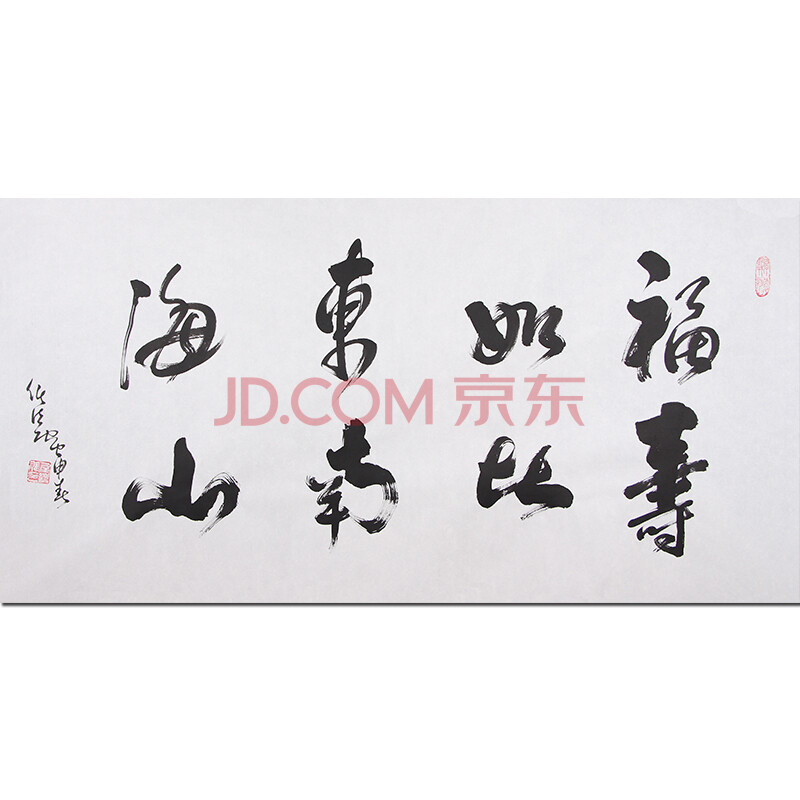 福壽
如比
東南
海山
JD.COM 京东